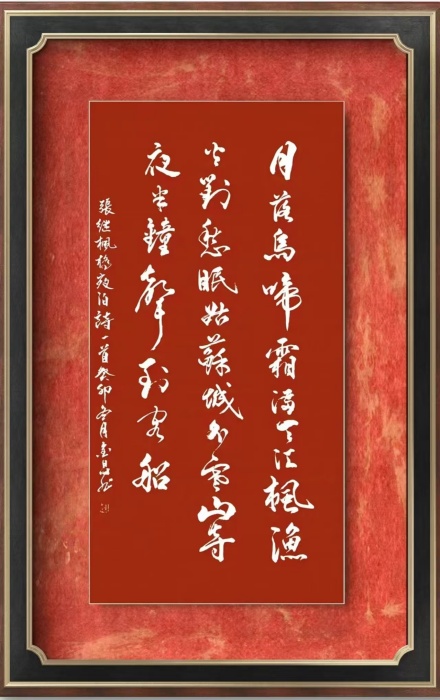 月落烏啼霜滿天江楓漁
火對愁眠姑蘇城外寒山寺
夜半鐘聲到客船
張继楓橋夜泊詩一首癸卯